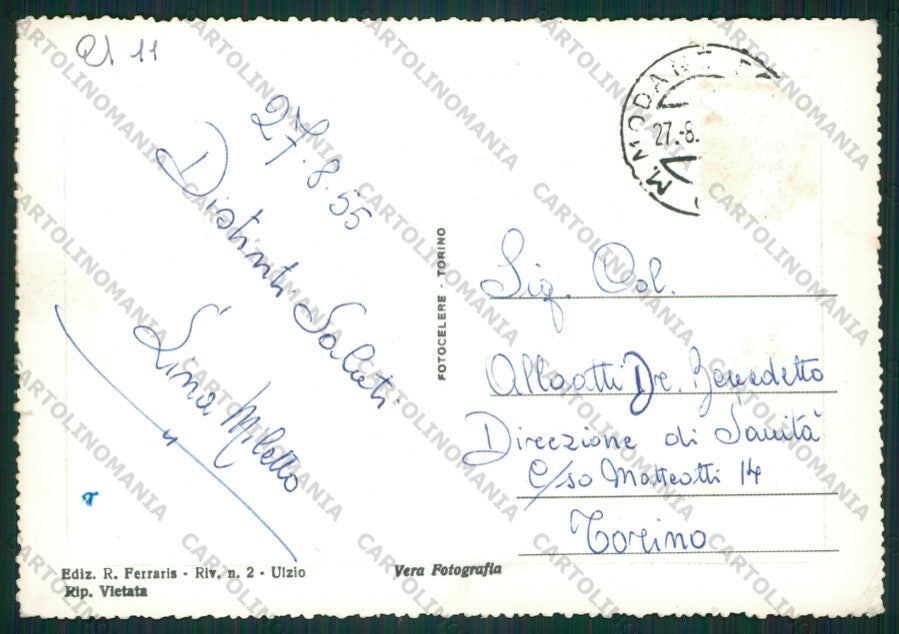 27.8.55
Distinti Saluti
Lina Miletto
27.-8.
FOTOCELERE - TORINO
Sig. Col.
Dr. Benedetto
Direzione di Sanità
C/so Matteotti 14
Torino
Ediz. R. Ferraris - Riv. n. 2 - Ulzio
Rip. Vietata
Vera Fotografia
CARTOLINOMANIA